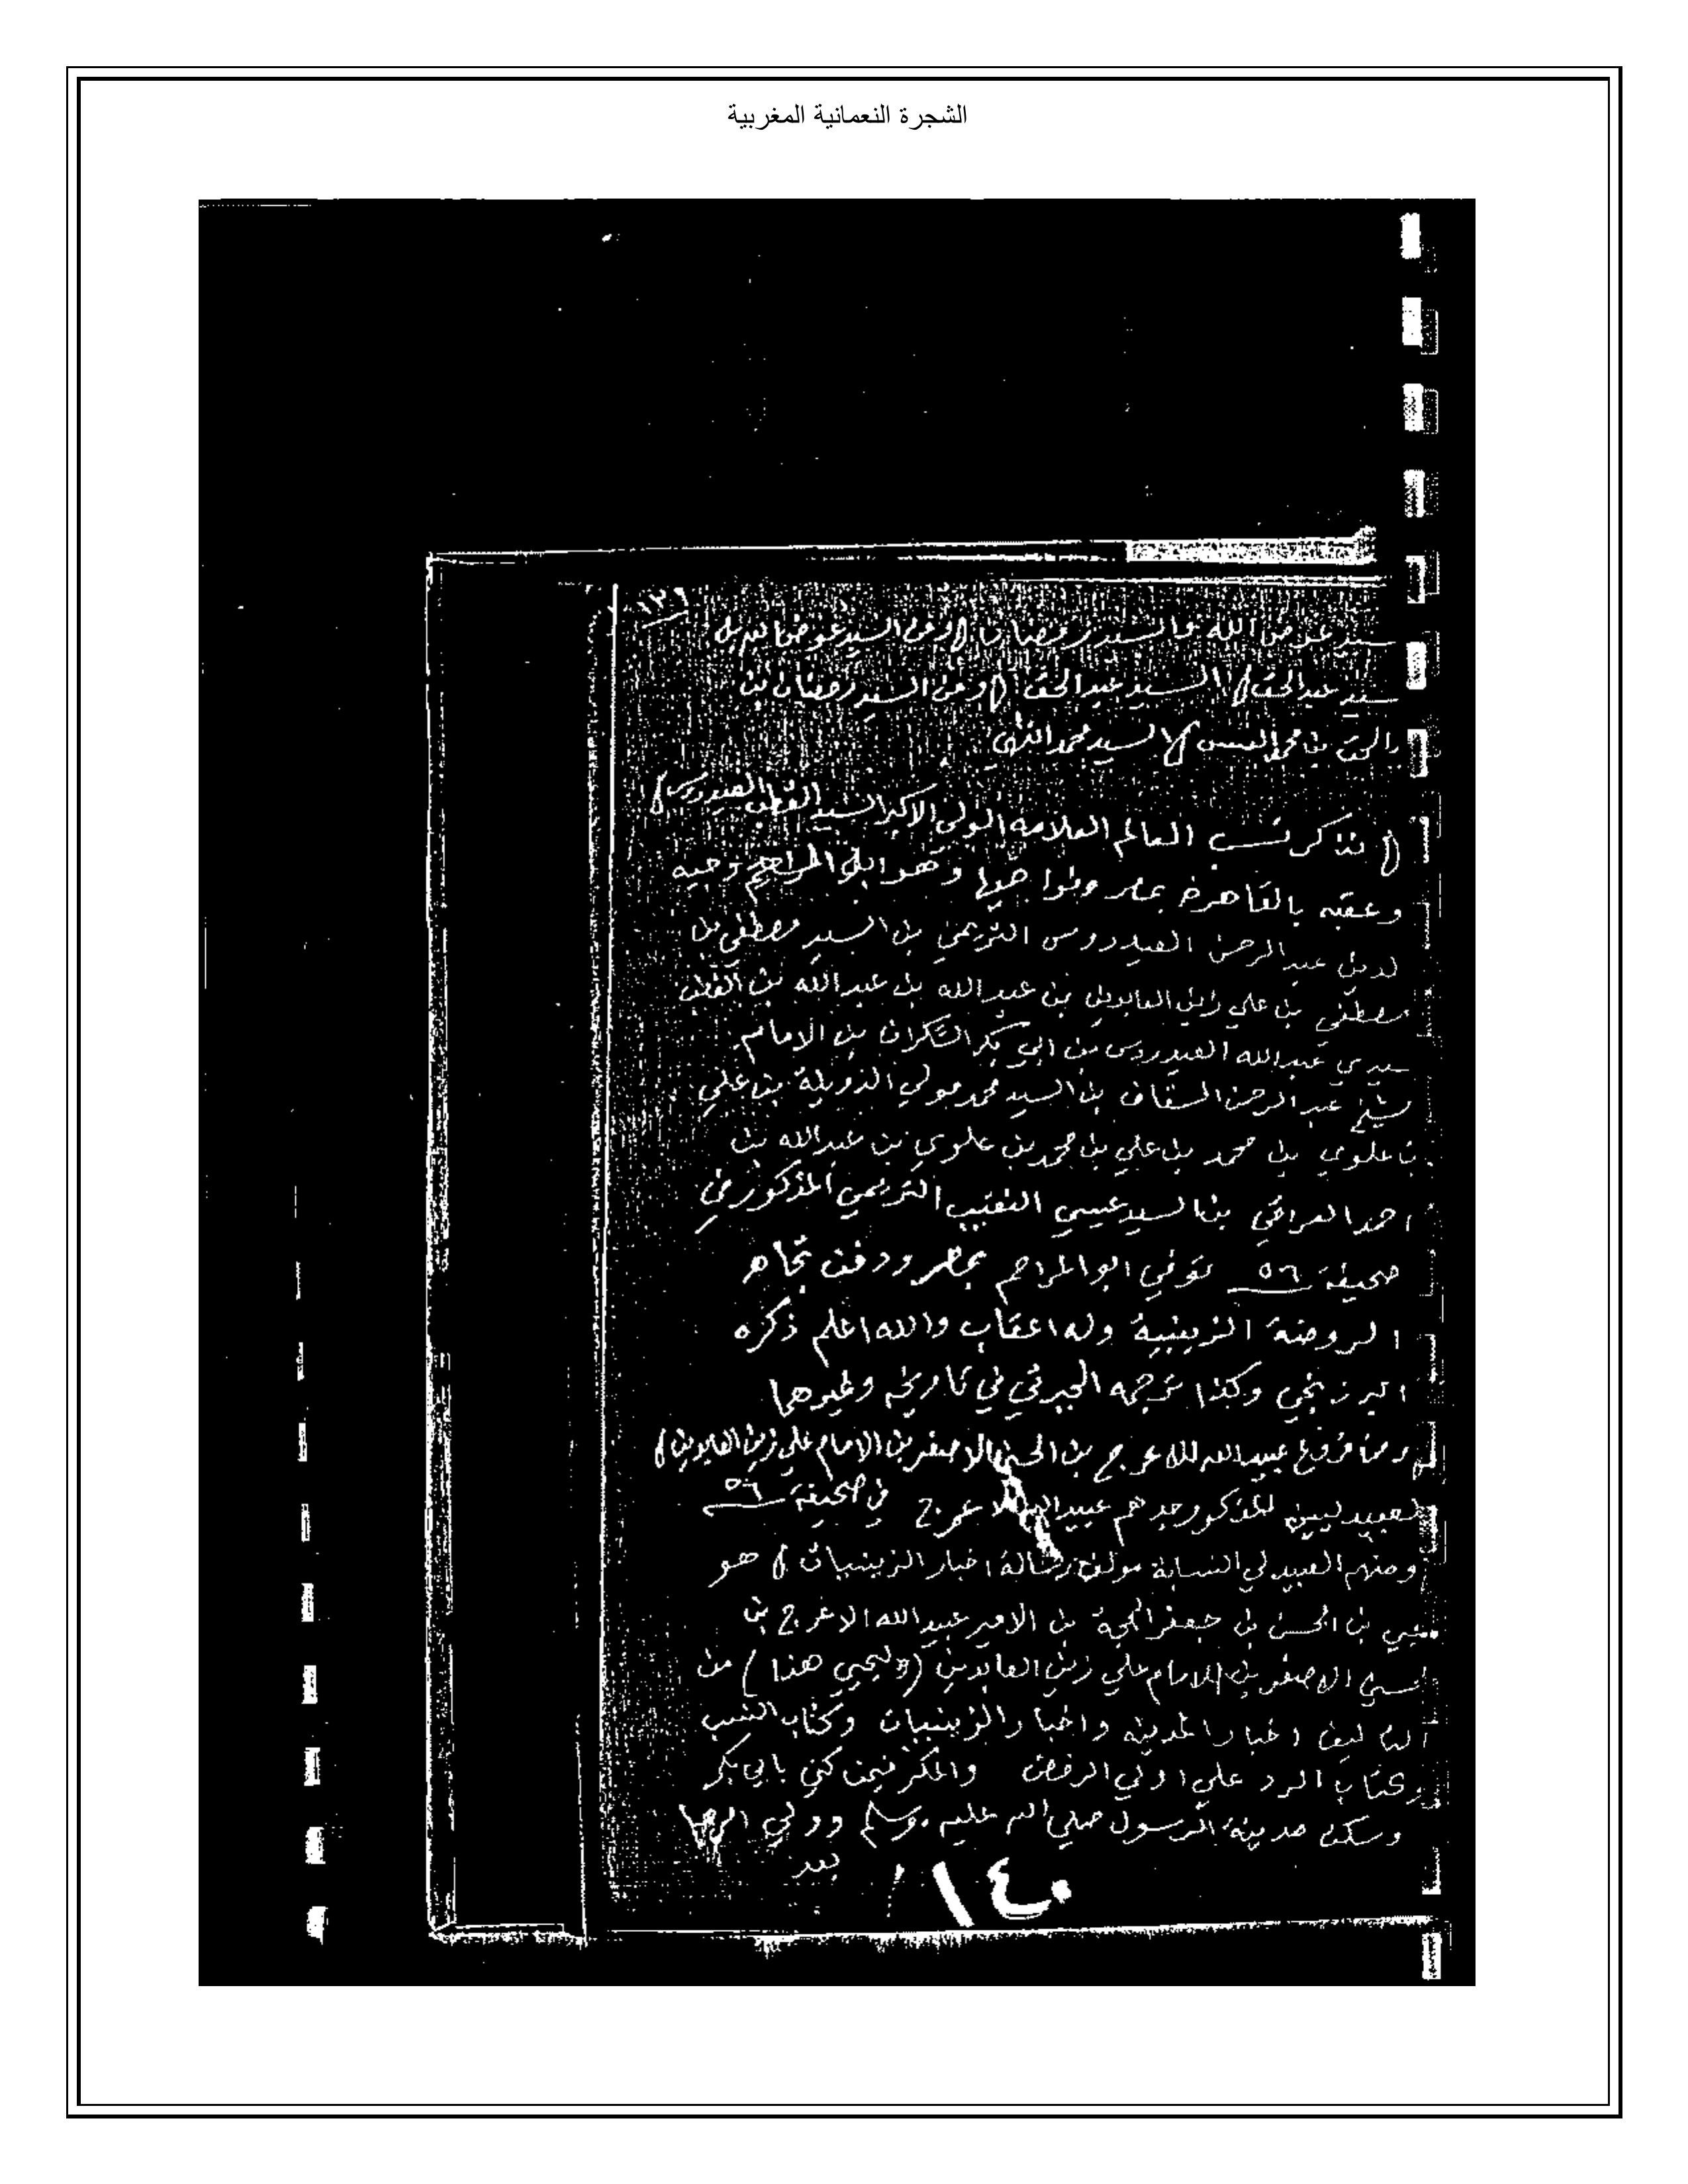 الشجرة النعمانية المغربية
١٢٦
سيد عوض الله والسيد رمضان ومن السيد عوض الله بن
سيد عبد الحق السيد عبد الحق ومن السيد رمضان بن
بن محمد السيد محمد
نذكر نسب العالم العلامه الولي الاكبر السيد القطب العيدروس
وعقبه بالقاهرة بمصر ونواحيها وهو ابي المراحم وجيه
لدين عبد الرحمن العيدروس التريمي بن السيد مصطفي بن
مصطفي بن علي زين العابدين بن عبد الله بن عبد الله بن القطب
سيدي عبد الله العيدروس بن ابي بكر السكران بن الامام
شيخ عبد الرحمن السقاف بن السيد محمد مولي الدويلة بن علي
بن علوي بن محمد بن علي بن محمد بن علوي بن عبد الله بن
احمد العراقي بن السيد عيسي النقيب التريمي المذكور في
صحيفة ٥٦ توفي ابو المراحم بمصر ودفن تجاه
الروضة الزينبية وله اعقاب والله اعلم ذكره
البرزنجي وكذا ترجمه الجبرتي في تاريخه وغيرهما
ومن فروع عبيد الله الاعرج بن الحسين الاصغر بن الامام علي زين العابدين
لعبيدليين المذكور جدهم عبيد الله الاعرج في صحيفة ٥٦
ومنهم العبيدلي النسابة مولف رسالة اخبار الزينبيات هو
يحيي بن الحسن بن جعفر الحجة بن الامير عبيد الله الاعرج بن
الاصغر بن الامام علي زين العابدين (وليحيي هذا) من
التاليف اخبار المدينه واخبار الزينبيات وكتاب النسب
وكتاب الرد علي اولي الرفض والمكر فيمن كني بابي بكر
وسكن مدينة الرسول صلي الله عليه وسلم وولي
بعد
١٤٠